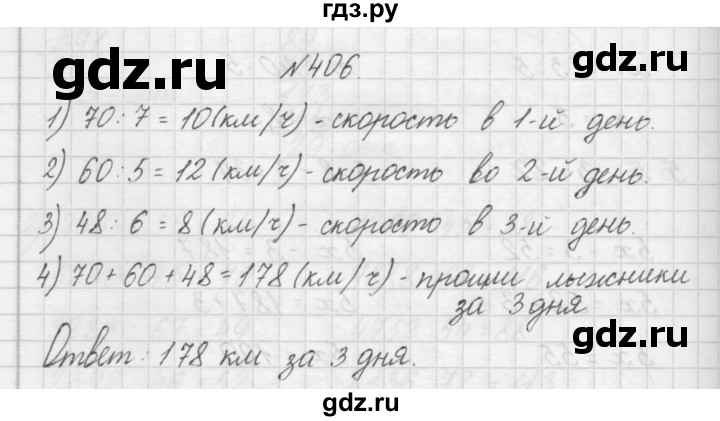 гдз.ру
gdz.ru
gdz.ru
№406.
1) 70 : 7 = 10 (км/ч) - скорость в 1-й день.
2) 60 : 5 = 12 (км/ч) - скорость во 2-й день.
3) 48 : 6 = 8 (км/ч) - скоросто в 3-й день.
4) 70 + 60 + 48 = 178 (км/ч) - прошли лыжники
за 3 дня
gdz.ru
Ответ : 178 км за 3 дня.
gdz.ru
gdz.ru